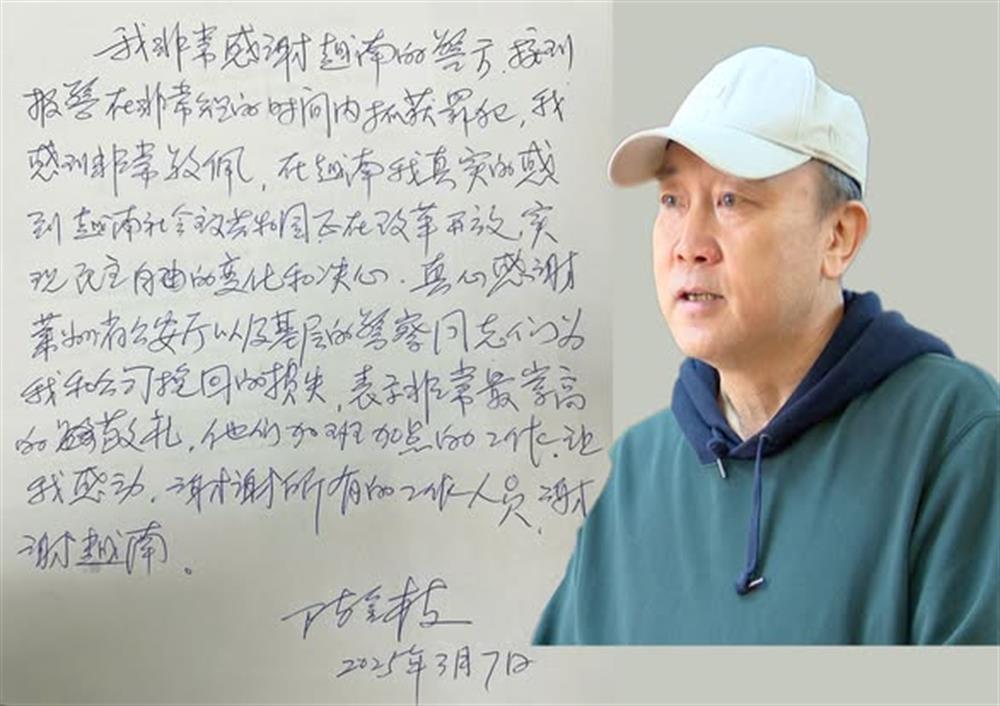 我非常感谢越南的警方,接到
报警在非常短的时间内抓获罪犯,我
感到非常敬佩,在越南我真实的感
到越南社会政共和国正在改革开放,实
现民主自由的变化和决心.真心感谢
莱州省公安厅以及基层的警察同志们为
我和公司挽回的损失,表示非常最崇高
的敬礼,他们加班加点的工作,让
我感动.谢谢所有的工作人员,谢
谢越南。
2025年3月7日